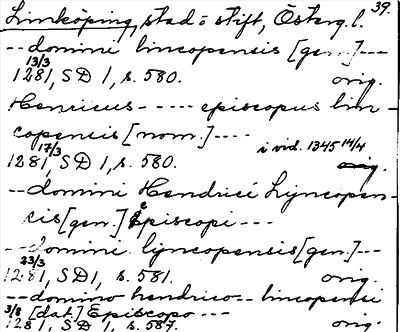 39.
Linköping, stad o stift, Österg. l.
-- domini lincopensis [gen.] ---
13/3
1281, SD 1, s. 580. orig.
Henricus ----- episcopus lin-
copensis [nom.] ----
17/3 i vid. 1345 14/4
1281, SD 1, s. 580. orig.
-- domini Hendrici Lyncopen-
sis [gen.] Episcopi ---
-- domini lyncopensis [gen.] ---
23/3
1281, SD 1, s. 581. orig.
-- domino hendrico -- lincopensi
3/8 [dat.] Episcopo ---
1281, SD 1, s. 587. orig.